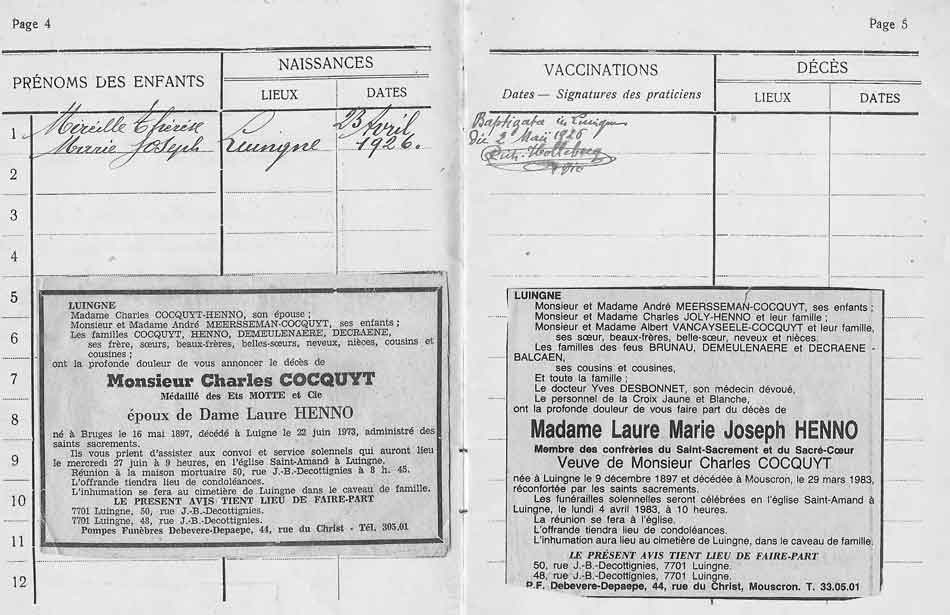 Page 4
PRÉNOMS DES ENFANTS
NAISSANCES
LIEUX
DATES
1
Mireille Thérèse
Marie Joseph
Luingne
23 Avril
1926.
2
3
4
5
6
7
8
9
10
11
12
LUINGNE
Madame Charles COCQUYT-HENNO, son épouse ;
Monsieur et Madame André MEERSSEMAN-COCQUYT, ses enfants ;
Les familles COCQUYT, HENNO, DEMEULENAERE, DECRAENE,
ses frère, sœurs, beaux-frères, belles-sœurs, neveux, nièces, cousins et
cousines ;
ont la profonde douleur de vous annoncer le décès de
Monsieur Charles COCQUYT
Médaillé des Ets MOTTE et Cie
époux de Dame Laure HENNO
né à Bruges le 16 mai 1897, décédé à Luigne le 22 juin 1973, administré des
saints sacrements.
Ils vous prient d'assister aux convoi et service solennels qui auront lieu
le mercredi 27 juin à 9 heures, en l'église Saint-Amand à Luingne.
Réunion à la maison mortuaire 50, rue J.-B.-Decottignies à 8 h. 45.
L'offrande tiendra lieu de condoléances.
L'inhumation se fera au cimetière de Luingne dans le caveau de famille.
LE PRESENT AVIS TIENT LIEU DE FAIRE-PART
7701 Luingne, 50, rue J.-B.-Decottignies.
7701 Luingne, 48, rue J.-B.-Decottignies.
Pompes Funèbres Debevere-Depaepe, 44, rue du Christ - Tél. 305.01
Page 5
VACCINATIONS
Dates — Signatures des praticiens
DÉCÈS
LIEUX
DATES
Baptizata in Luingne
die 2 Maii 1926
LUINGNE
Monsieur et Madame André MEERSSEMAN-COCQUYT, ses enfants ;
Monsieur et Madame Charles JOLY-HENNO et leur famille ;
Monsieur et Madame Albert VANCAYSEELE-COCQUYT et leur famille,
ses sœur, beaux-frères, belle-sœur, neveux et nièces.
Les familles des feus BRUNAU, DEMEULENAERE et DECRAENE -
BALCAEN,
ses cousins et cousines,
Et toute la famille ;
Le docteur Yves DESBONNET, son médecin dévoué,
Le personnel de la Croix Jaune et Blanche,
ont la profonde douleur de vous faire part du décès de
Madame Laure Marie Joseph HENNO
Membre des confréries du Saint-Sacrement et du Sacré-Cœur
Veuve de Monsieur Charles COCQUYT
née à Luingne le 9 décembre 1897 et décédée à Mouscron, le 29 mars 1983,
réconfortée par les saints sacrements.
Les funérailles solennelles seront célébrées en l'église Saint-Amand à
Luingne, le lundi 4 avril 1983, à 10 heures.
La réunion se fera à l'église.
L'offrande tiendra lieu de condoléances.
L'inhumation aura lieu au cimetière de Luingne, dans le caveau de famille.
LE PRÉSENT AVIS TIENT LIEU DE FAIRE-PART
50, rue J.-B.-Decottignies, 7701 Luingne.
48, rue J.-B.-Decottignies, 7701 Luingne.
P.F. Debevere-Depaepe, 44, rue du Christ, Mouscron. T. 33.05.01